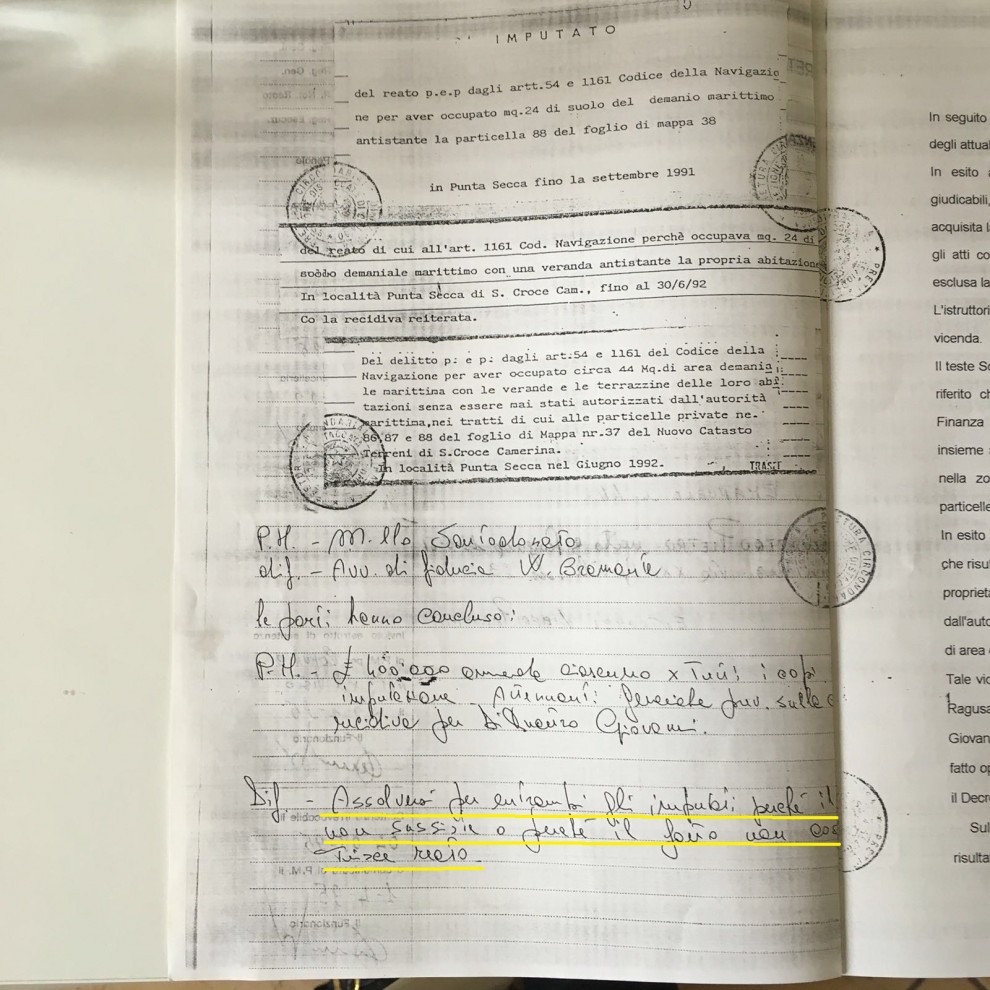 IMPUTATO
del reato p.e.p dagli artt.54 e 1161 Codice della Navigazio
ne per aver occupato mq.24 di suolo del demanio marittimo
antistante la particella 88 del foglio di mappa 38
in Punta Secca fino la settembre 1991
del reato di cui all'art. 1161 Cod. Navigazione perchè occupava mq. 24 di
demaniale marittimo con una veranda antistante la propria abitazione
In località Punta Secca di S. Croce Cam., fino al 30/6/92
Co la recidiva reiterata.
Del delitto p: e p: dagli art:54 e 1161 del Codice della
Navigazione per aver occupato circa 44 Mq.di area demania
le marittima con le verande e le terrazzine delle loro abi
tazioni senza essere mai stati autorizzati dall'autorità
marittima,nei tratti di cui alle particelle private ne.
86,87 e 88 del foglio di Mappa nr.37 del Nuovo Catasto
Terreni di S.Croce Camerina.
In località Punta Secca nel Giugno 1992.
P.M. - M.llo
dif. - Avv. di fiducia
le parti hanno concluso:
P.M. - £ 400.000 ammenda ciascuno x tutti i capi
imputazione generiche prev. sulla
recidiva per Giovanni.
Dif. - Assolversi per entrambi gli imputati perché il
non sussiste o perché il fatto non cos
tuisce reato.
In seguito
degli attual
In esito
giudicabili,
acquisita l
gli atti co
esclusa la
L'istruttori
vicenda.
Il teste So
riferito ch
Finanza
insieme
nella zo
particelle
In esito
che risu
proprietà
dall'auto
di area
Tale vic
Ragusa
Giovan
fatto op
il Decre
Sul
risulta